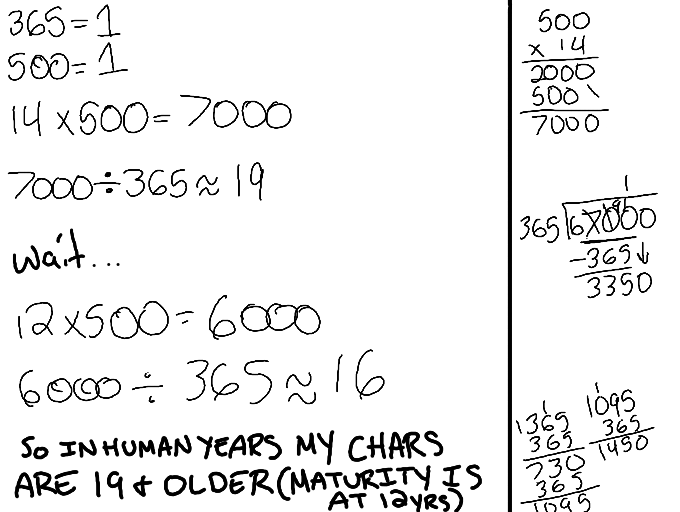 365=1
500=1
14x500=7000
7000÷365≈19
wait...
12x500=6000
6000÷365≈16
SO IN HUMAN YEARS MY CHARS
ARE 19 & OLDER (MATURITY IS
AT 12YRS)
500
x 14
2000
500\
7000
1
365
-365↓
3350
1
1365
365
730
365
1095
1
1095
365
1450